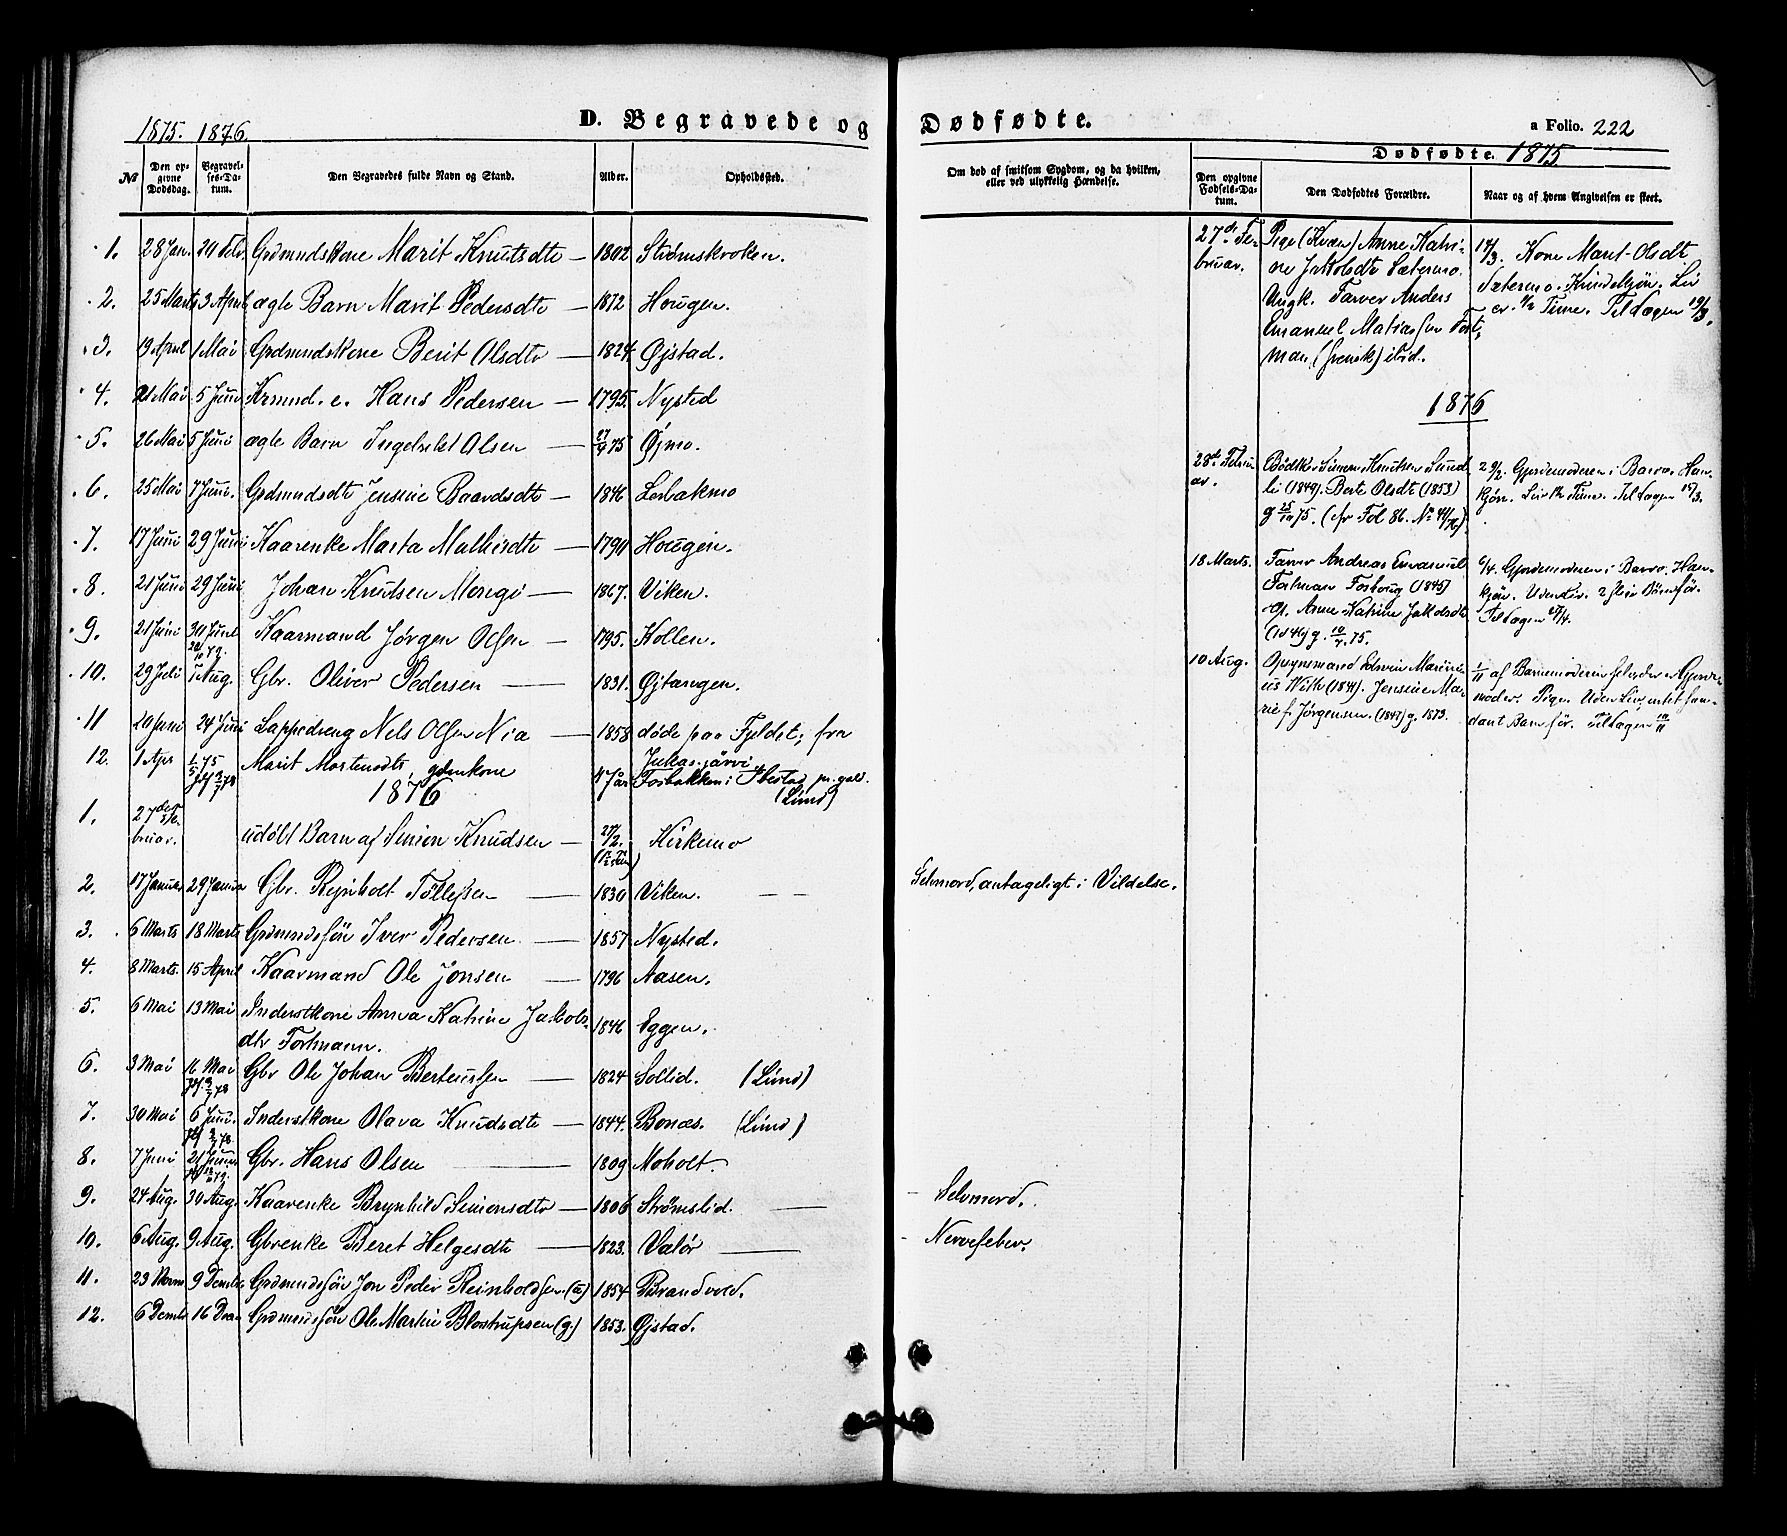 1875. 1876.
D. Begravede og
Dødfødte.
a Folio. 222
Dødfødte. 1875
№
Den opgivne Dødsdag.
Begravelses-Datum.
Den Begravedes fulde Navn og Stand.
Alder.
Opholdssted.
Om død af smitsom Sygdom, og da hvilken,
eller ved ulykkelig Hændelse.
Den opgivne Fødsels-Datum.
Den Dødfødtes Forældre.
Naar og af hvem Angivelsen er skeet.
1. 28 Jan. 20 Febr. Grdmndskone Marit Knutsdtr — 1802 Strømskroken.
2. 25 Marts 3 April ægte Barn Marit Pedersdtr — 1872 Hougen.
3. 19 April 1 Mai Grdmndskone Berit Olsdtr — 1824 Øjstad.
4. 21 Mai 5 Juni Krmnd. e. Hans Pedersen — 1795. Nysted
5. 26 Mai 5 Juni ægte Barn Ingebrikt Olsen — 27/4 75 Øjmo.
6. 25 Mai 7 Juni. Grdmndsdtr Jensine Baardsdtr — 1846 Løvbakmo
7. 17 Juni 29 Juni Kaarenke Marta Mathisdtr — 1790 Hougen.
8. 21 Juni 29 Juni Johan Knutsen Moengi — 1867. Viken.
9. 21 Juni 30 Juni Kaarmand Jørgen Olsen — 1795. Kollen.
10. 29 Juli 1 Aug. Gbr. Oliver Pedersen — 1831. Øjtangen.
11 20 Juni 24 Juni Lappedreng Nels Olsen Nia — 1858 døde paa Fjeldet; fra
Jukasjärvi
12. 1 Apr 1/5 75 Marit Mortensdtr, gdmkone 47 år Fosbakken i Ibestad pr.gjeld.
(Lund)
1876
1. 27de Febr
bruar. udøbt Barn af Simon Knudsen — 27/2. Kirkemo
2. 17 Januar 29 Januar Gbr. Reinholt Tollefsen — 1830 Viken. — Selvmord, antageligt i Vildelse.
3. 6 Marts 18 Marts Grdmndssøn Iver Pedersen — 1857 Nysted.
4. 8 Marts. 15 April Kaarmand Ole Jonsen — 1796 Aasen.
5. 6 Mai 13 Mai Inderstkone Anna Katrine Jakobs-
dtr Fortmann. 1846 Eggen.
6. 3 Mai 16 Mai Gbr Ole Johan Berteussen — 1824 Sollid. (Lund)
7. 30 Mai 6 Juni. Inderstkone Olava Knudsdtr — 1844. Bonæs. (Lund)
8. 7 Juni 21 Juni Gbr. Hans Olsen — 1809 Moholt.
9. 24 Aug. 30 Aug. Kaarenke Brynhild Simonsdtr — 1806 Strømslid. — Selvmord.
10. 6 Aug. 9 Aug. Gbrenke Beret Helgesdtr — 1823. Valør — Nervefeber.
11. 23 Novm 9 Dembr Grdmndssøn Jon Peder Reinholdsen (u) 1854 Brandvold.
12. 6 Dembr 16 Grdmndssøn Ole Martin Blostrupsen (g.) 1853. Øjstad.
27de Fe-
bruar.
Pige (Kvæn) Anne Katri-
ne Jakobsdtr Sætermo.
Ungk. Farver Anders
Emanuel Matiassen Fort-
man (svensk) ibid.
17/3. Kone Marit Olsdtr
Sætermo. Kvindekjøn. Liv
er. 1/2 Time. Til Lagen 19/3.
1876
28de Febru
ar.
Bødk. Simon Knutsen Sund-
li (1849). Berte Olsdtr (1853)
g 25/10 75. (cfr Fol 86. No 44/76)
29/2. Gjordemoderen i Barvo. Han-
kjøn. Liv 1/2 Time. Til Lagen 15/3.
18 Marts.
Farver Andreas Emanuel
Fortman Fosbaug (1845)
og Anne Katrine Jakobsdtr
(1846) g. 10/7. 75.
6/4. Gjordemoderen i Barvo. Han-
kjøn. Uden Liv. 2 flere Børn før.
Til Lagen 20/4.
10 Aug.
Opsynsmand Edvin Marini-
us Wik (1841). Jensine Ma-
rie f. Jørgensen. (1847) g. 1873.
1/11 af Barnemoderen selv, der er Gjorde-
moder. Pige. Uden Liv, intet saa-
dant Barn før. til Lagen 10/11